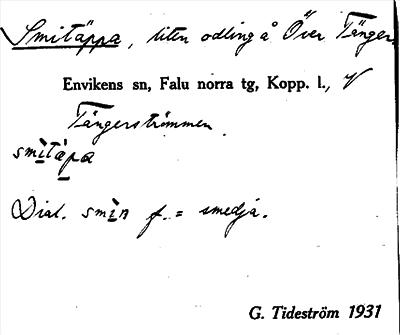 Smitäppa, liten odling å Över Tänger-
Envikens sn, Falu norra tg, Kopp. l., V
Tängerströmmen.
smìtàpa
Dial. smìn f. = smedja.
G. Tideström 1931